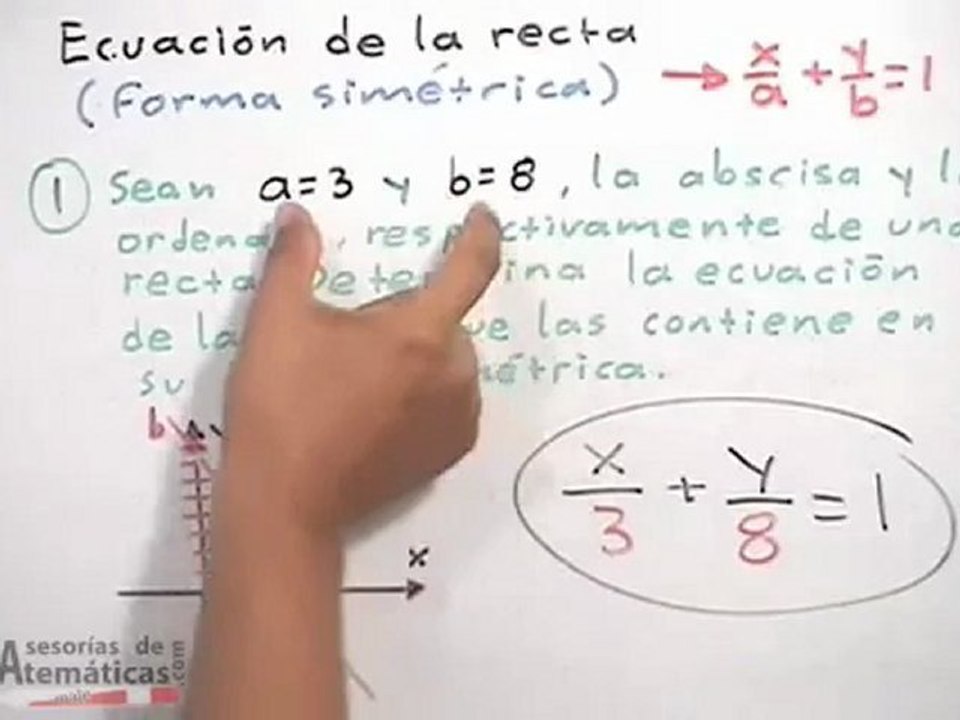 Ecuación de la recta
(forma simétrica) → x/a + y/b = 1
① Sean a=3 y b=8, la abscisa y
respectivamente de
recta ina la ecuación
de la las contiene en
su
b
x/3 + y/8 = 1
x
Asesorías de
Matemáticas.com